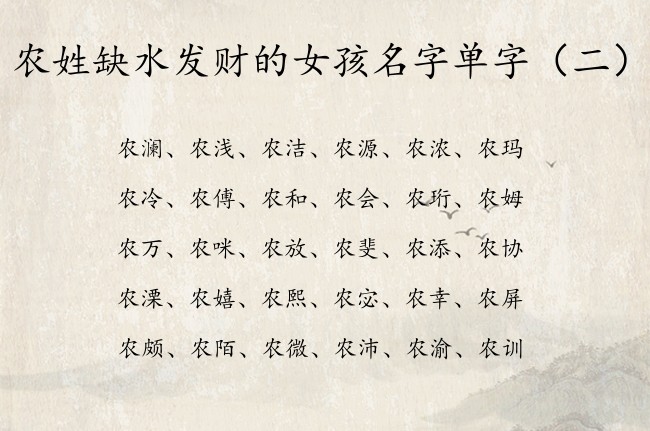 农姓缺水发财的女孩名字单字（二）
农澜、农浅、农洁、农源、农浓、农玛
农冷、农傅、农和、农会、农珩、农姆
农万、农咪、农放、农斐、农添、农协
农溧、农嬉、农熙、农宓、农幸、农屏
农颇、农陌、农微、农沛、农渝、农训